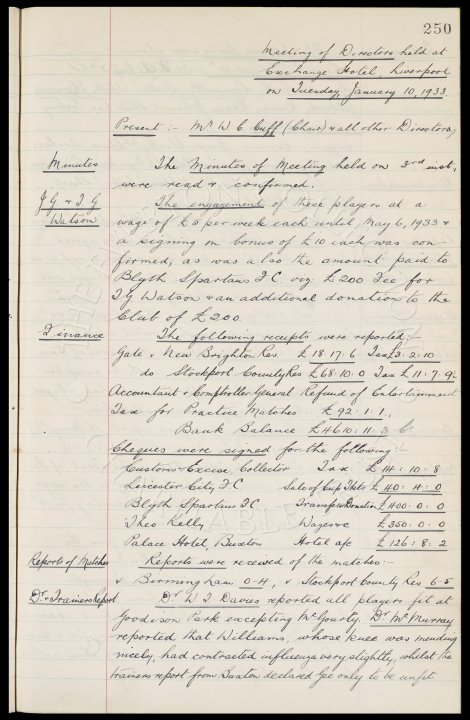 250
Meeting of Directors held at
Exchange Hotel, Liverpool
on Tuesday, January 10, 1933
Present :- Mr W C Cuff (Chair) & all other Directors,
Minutes The Minutes of Meeting held on 3rd inst,
were read & confirmed.
J G & T G The engagement of these players at a
Watson wage of £5 per week each until May 6, 1933 &
a signing on bonus of £10 each was con
firmed, as was also the amount paid to
Blyth Spartans F C, viz: £200 Fee for
T G Watson & an additional donation to the
Club of £200.
Finance The following receipts were reported:-
Gate v New Brighton Res £18.17.6 Tax £3.2.10
do Stockport County Res £68.10.0 Tax £11.7.9
Accountant & Comptroller General Refund of Entertainment
Tax for Practice Matches £92:1:1,
Bank Balance £4610:11:3 Cr
Cheques were signed for the following:-
Customs & Excise Collector Tax £14:10:8
Leicester City F C Sale of Cup Tkts £40:4:0
Blyth Spartans F C Transfer & Donation £400:0:0
Theo Kelly Wages &c £350:0:0
Palace Hotel, Buxton Hotel a/c £126:8:2
Reports of Matches Reports were received of the matches:-
v Birmingham 0-4, v Stockport County Res 6-5
Dr & Trainers Report Dr W T Davies reported all players fit at
Goodison Park excepting McGourty. Dr McMurray
reported that Williams, whose knee was mending
nicely, had contracted influenza very slightly, whilst the
trainers report from Buxton declared Gee only to be unfit.